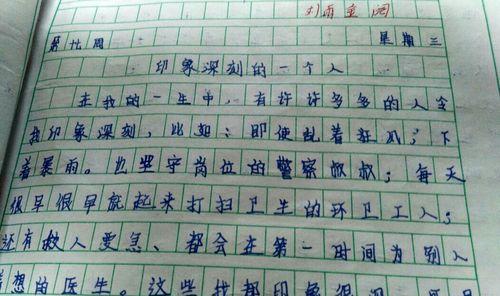 刘雨童阅
第九周 星期三
印象深刻的一个人
在我的一生中,有许许多多的人令
我印象深刻,比如:即使乱着狂风;下
着暴雨。也坚守岗位的警察叔叔;每天
很早很早就起来打扫卫生的环卫工人;
还有救人要急、都会在第一时间为别人
着想的医生。这些找都印象很深